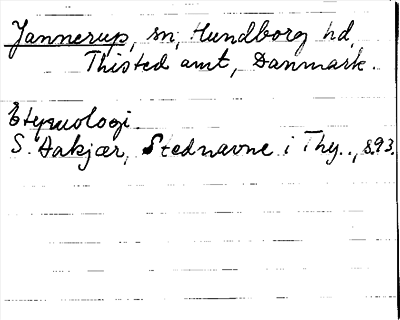 Jannerup, sn, Hundborg hd,
Thisted amt, Danmark.
Etymologi.
S. Aakjær, Stednavne i Thy.., s.93.